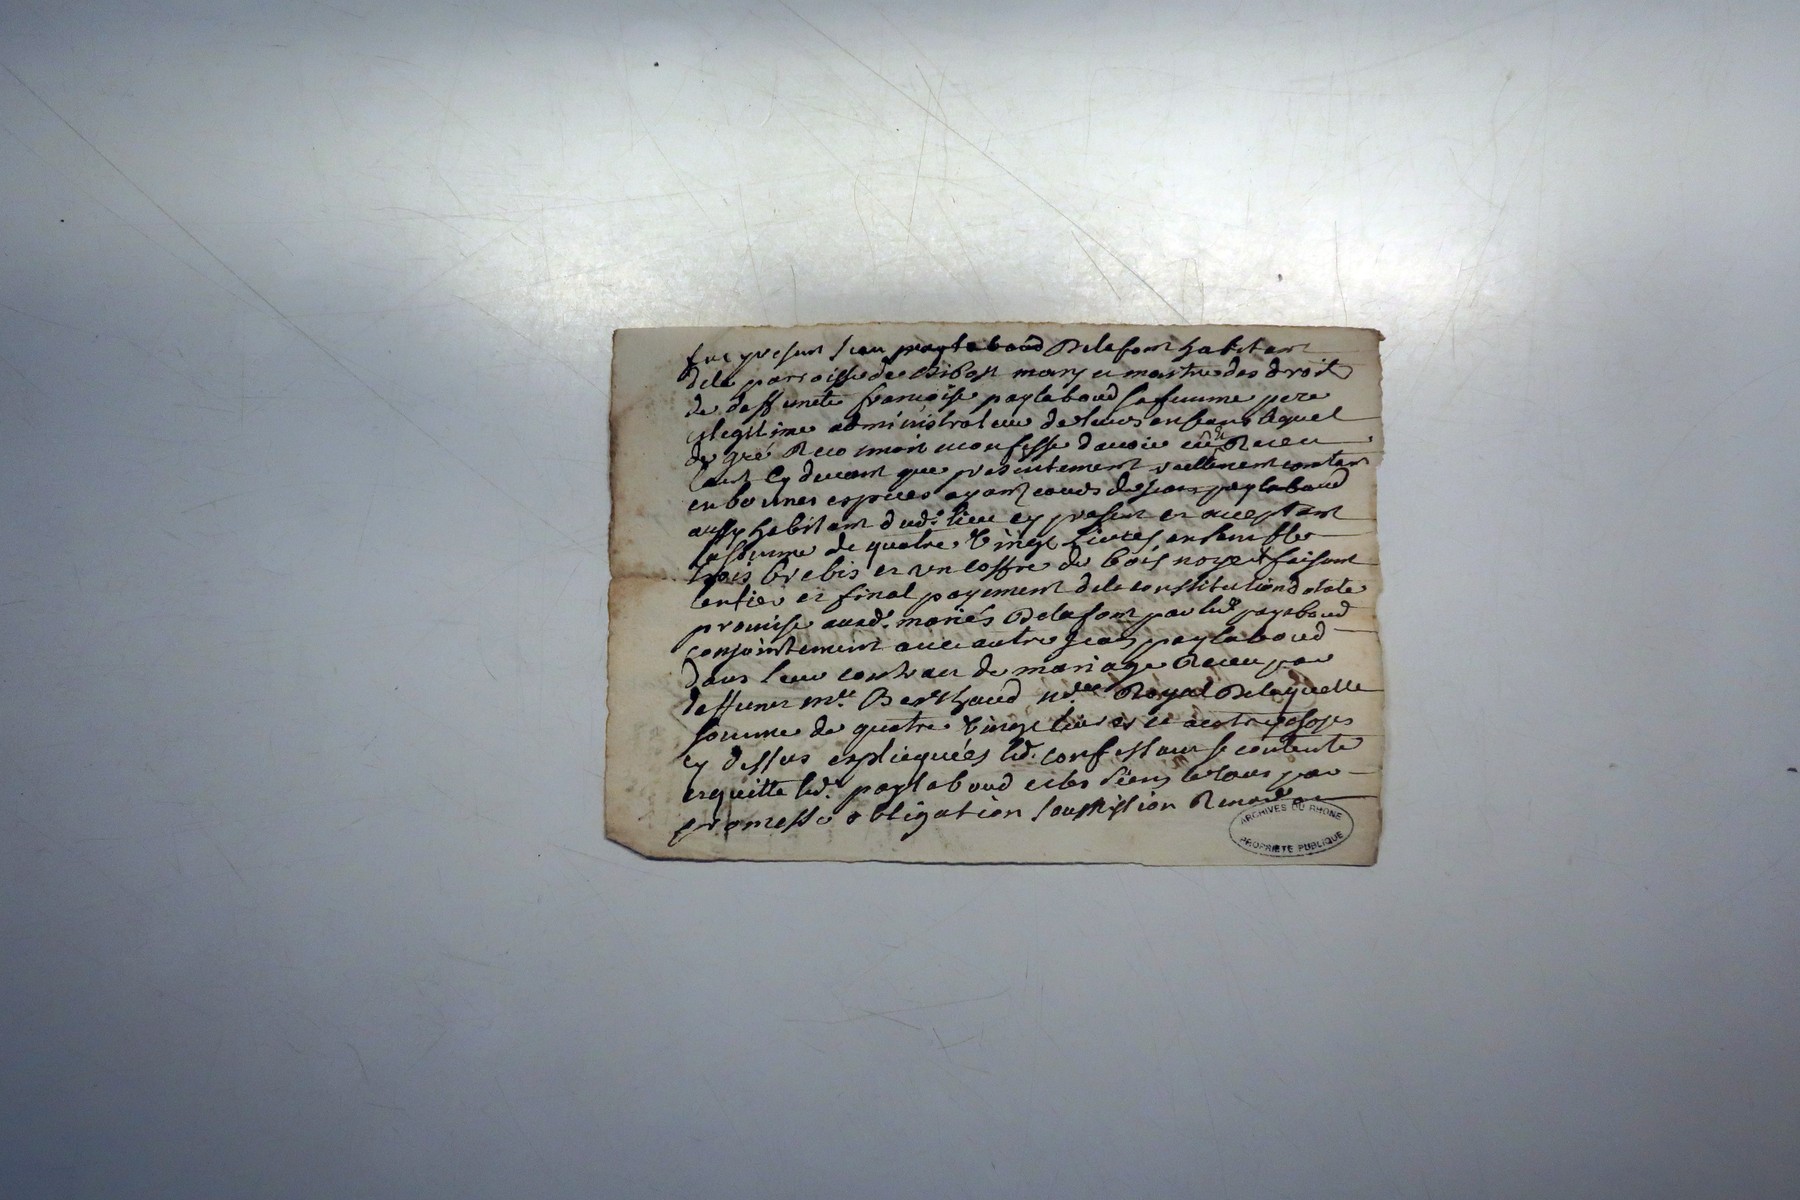 fut present Jean paytaboud Delafont habitant
dela parroisse de Bibost mary et maitre des droit
de deffuncte francoise paylaboud sa femme pere
et legitime administrateur de leurs enfans lequel
de gré Reconnoit et confesse d'avoir Receu
tant Cy devant que presentement reellement contant
en bonnes especes ayant cours de Jean paylaboud
aussy habitant dud. lieu cy present et acceptant
la somme de quatre Vingt Livres ensemble
trois brebis et un coffre de bois noyer faisant
lentier et final payement dela constitution dotale
promise auxd. mariés Delafont par led. paylaboud
conjointement avec autre Jean paylaboud
dans leur contract de mariage Receu par
deffunct Mc. Berthaud nre Royal De laquelle
somme de quatre Vingt livres et autres choses
cy dessus expliequées led. confessant se contente
et quitte led. paylaboud et les siens le tout par
promesse obligation soumission
ARCHIVES DU RHONE
PROPRIETE PUBLIQUE